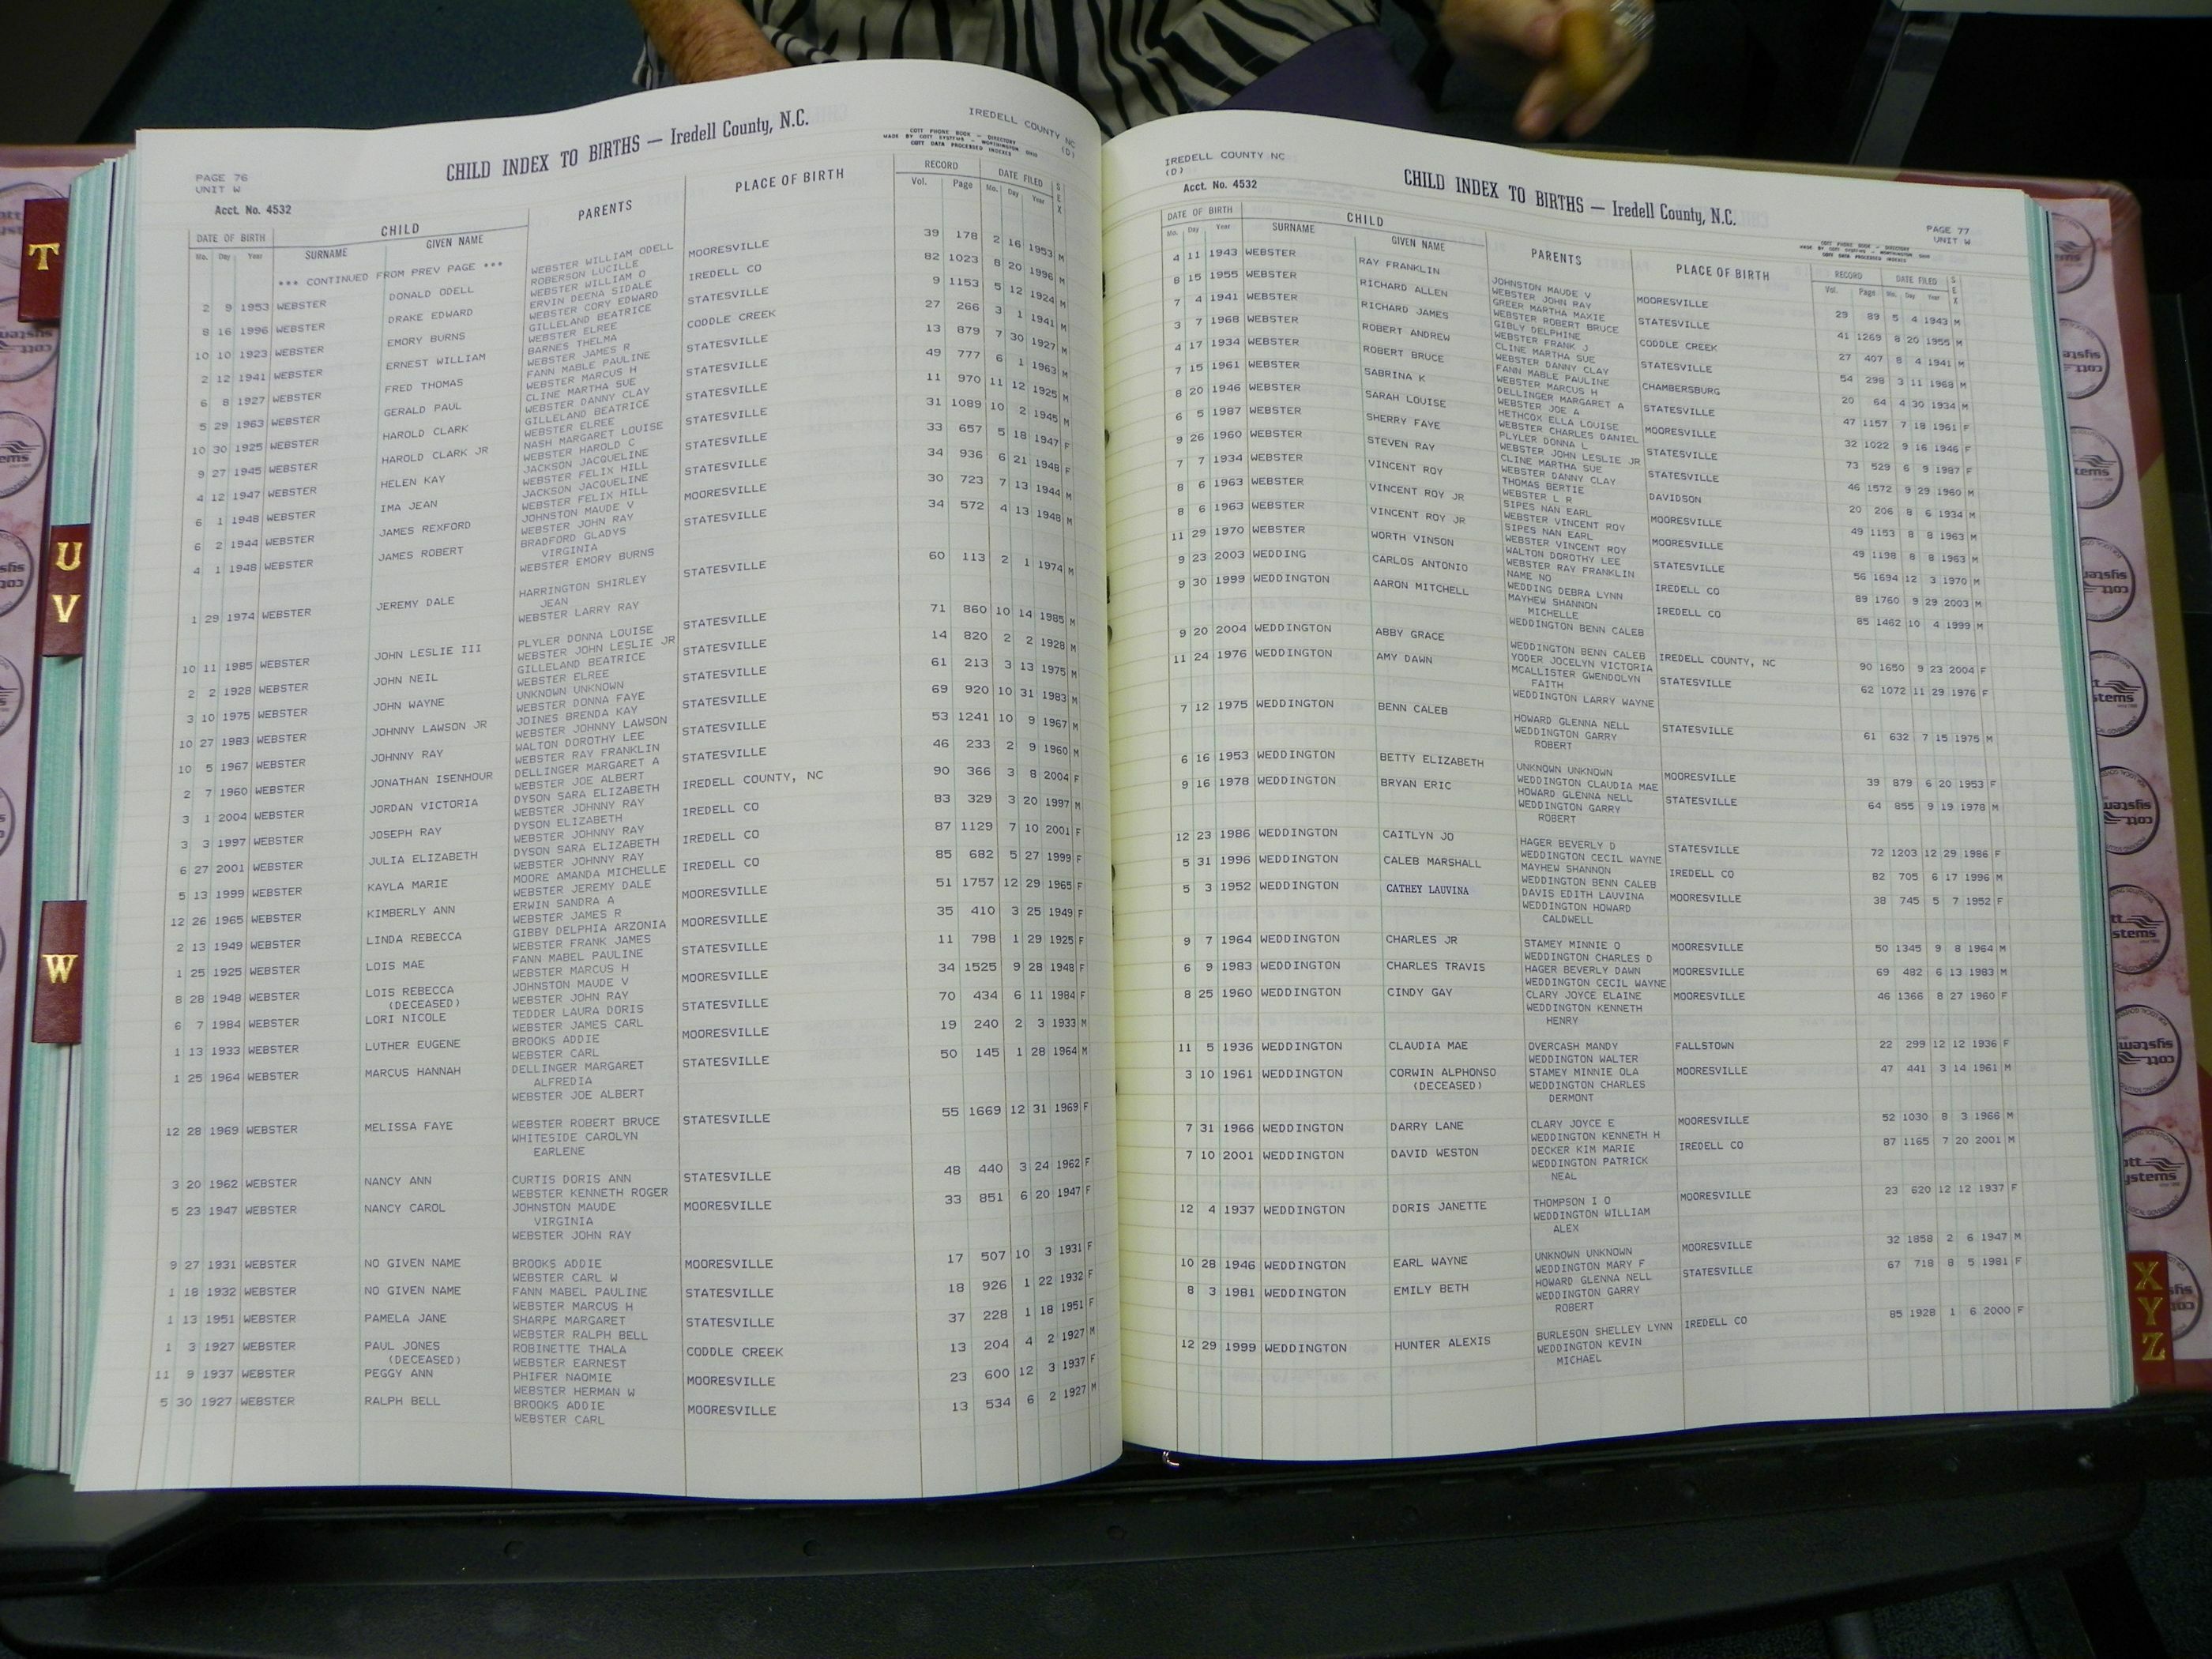 IREDELL COUNTY NC
(D)
CHILD INDEX TO BIRTHS — Iredell County, N.C.
COTT PHONE BOOK - DIRECTORY
MADE BY COTT SYSTEMS - WORTHINGTON OHIO
COTT DATA PROCESSED INDEXES
PAGE 76
UNIT W
Acct. No. 4532
DATE OF BIRTH CHILD PARENTS PLACE OF BIRTH RECORD DATE FILED SEX
Mo. Day Year SURNAME GIVEN NAME Vol. Page Mo. Day Year
*** CONTINUED FROM PREV PAGE ***
WEBSTER WILLIAM ODELL
2 9 1953 WEBSTER DONALD ODELL ROBERSON LUCILLE MOORESVILLE 39 178 2 16 1953 M
WEBSTER WILLIAM O
8 16 1996 WEBSTER DRAKE EDWARD ERVIN DEENA SIDALE IREDELL CO 82 1023 8 20 1996 M
WEBSTER CORY EDWARD
10 10 1923 WEBSTER EMORY BURNS GILLELAND BEATRICE STATESVILLE 9 1153 5 12 1924 M
WEBSTER ELREE
2 12 1941 WEBSTER ERNEST WILLIAM BARNES THELMA CODDLE CREEK 27 266 3 1 1941 M
WEBSTER JAMES R
6 8 1927 WEBSTER FRED THOMAS FANN MABLE PAULINE STATESVILLE 13 879 7 30 1927 M
WEBSTER MARCUS H
5 29 1963 WEBSTER GERALD PAUL CLINE MARTHA SUE STATESVILLE 49 777 6 1 1963 M
WEBSTER DANNY CLAY
10 30 1925 WEBSTER HAROLD CLARK GILLELAND BEATRICE STATESVILLE 11 970 11 12 1925 M
WEBSTER ELREE
9 27 1945 WEBSTER HAROLD CLARK JR NASH MARGARET LOUISE STATESVILLE 31 1089 10 2 1945 M
WEBSTER HAROLD C
4 12 1947 WEBSTER HELEN KAY JACKSON JACQUELINE STATESVILLE 33 657 5 18 1947 F
WEBSTER FELIX HILL
6 1 1948 WEBSTER IMA JEAN JACKSON JACQUELINE STATESVILLE 34 936 6 21 1948 F
WEBSTER FELIX HILL
6 2 1944 WEBSTER JAMES REXFORD JOHNSTON MAUDE V MOORESVILLE 30 723 7 13 1944 M
WEBSTER JOHN RAY
4 1 1948 WEBSTER JAMES ROBERT BRADFORD GLADYS STATESVILLE 34 572 4 13 1948 M
VIRGINIA
WEBSTER EMORY BURNS
1 29 1974 WEBSTER JEREMY DALE HARRINGTON SHIRLEY STATESVILLE 60 113 2 1 1974 M
JEAN
WEBSTER LARRY RAY
10 11 1985 WEBSTER JOHN LESLIE III PLYLER DONNA LOUISE STATESVILLE 71 860 10 14 1985 M
WEBSTER JOHN LESLIE JR
2 2 1928 WEBSTER JOHN NEIL GILLELAND BEATRICE STATESVILLE 14 820 2 2 1928 M
WEBSTER ELREE
3 10 1975 WEBSTER JOHN WAYNE UNKNOWN UNKNOWN STATESVILLE 61 213 3 13 1975 M
WEBSTER DONNA FAYE
10 27 1983 WEBSTER JOHNNY LAWSON JR JOINES BRENDA KAY STATESVILLE 69 920 10 31 1983 M
WEBSTER JOHNNY LAWSON
10 5 1967 WEBSTER JOHNNY RAY WALTON DOROTHY LEE STATESVILLE 53 1241 10 9 1967 M
WEBSTER RAY FRANKLIN
2 7 1960 WEBSTER JONATHAN ISENHOUR DELLINGER MARGARET A STATESVILLE 46 233 2 9 1960 M
WEBSTER JOE ALBERT
3 1 2004 WEBSTER JORDAN VICTORIA DYSON SARA ELIZABETH IREDELL COUNTY, NC 90 366 3 8 2004 F
WEBSTER JOHNNY RAY
3 3 1997 WEBSTER JOSEPH RAY DYSON ELIZABETH IREDELL CO 83 329 3 20 1997 M
WEBSTER JOHNNY RAY
6 27 2001 WEBSTER JULIA ELIZABETH DYSON SARA ELIZABETH IREDELL CO 87 1129 7 10 2001 F
WEBSTER JOHNNY RAY
5 13 1999 WEBSTER KAYLA MARIE MOORE AMANDA MICHELLE IREDELL CO 85 682 5 27 1999 F
WEBSTER JEREMY DALE
12 26 1965 WEBSTER KIMBERLY ANN ERWIN SANDRA A MOORESVILLE 51 1757 12 29 1965 F
WEBSTER JAMES R
2 13 1949 WEBSTER LINDA REBECCA GIBBY DELPHIA ARZONIA MOORESVILLE 35 410 3 25 1949 F
WEBSTER FRANK JAMES
1 25 1925 WEBSTER LOIS MAE FANN MABEL PAULINE STATESVILLE 11 798 1 29 1925 F
WEBSTER MARCUS H
8 28 1948 WEBSTER LOIS REBECCA JOHNSTON MAUDE V MOORESVILLE 34 1525 9 28 1948 F
(DECEASED) WEBSTER JOHN RAY
6 7 1984 WEBSTER LORI NICOLE TEDDER LAURA DORIS STATESVILLE 70 434 6 11 1984 F
WEBSTER JAMES CARL
1 13 1933 WEBSTER LUTHER EUGENE BROOKS ADDIE MOORESVILLE 19 240 2 3 1933 M
WEBSTER CARL
1 25 1964 WEBSTER MARCUS HANNAH DELLINGER MARGARET STATESVILLE 50 145 1 28 1964 M
ALFREDIA
WEBSTER JOE ALBERT
12 28 1969 WEBSTER MELISSA FAYE WEBSTER ROBERT BRUCE STATESVILLE 55 1669 12 31 1969 F
WHITESIDE CAROLYN
EARLENE
3 20 1962 WEBSTER NANCY ANN CURTIS DORIS ANN STATESVILLE 48 440 3 24 1962 F
WEBSTER KENNETH ROGER
5 23 1947 WEBSTER NANCY CAROL JOHNSTON MAUDE MOORESVILLE 33 851 6 20 1947 F
VIRGINIA
WEBSTER JOHN RAY
9 27 1931 WEBSTER NO GIVEN NAME BROOKS ADDIE MOORESVILLE 17 507 10 3 1931 F
WEBSTER CARL W
1 18 1932 WEBSTER NO GIVEN NAME FANN MABEL PAULINE STATESVILLE 18 926 1 22 1932 F
WEBSTER MARCUS H
1 13 1951 WEBSTER PAMELA JANE SHARPE MARGARET STATESVILLE 37 228 1 18 1951 F
WEBSTER RALPH BELL
1 3 1927 WEBSTER PAUL JONES ROBINETTE THALA CODDLE CREEK 13 204 4 2 1927 M
(DECEASED) WEBSTER EARNEST
11 9 1937 WEBSTER PEGGY ANN PHIFER NAOMIE MOORESVILLE 23 600 12 3 1937 F
WEBSTER HERMAN W
5 30 1927 WEBSTER RALPH BELL BROOKS ADDIE MOORESVILLE 13 534 6 2 1927 M
WEBSTER CARL
IREDELL COUNTY NC
(D)
Acct. No. 4532
CHILD INDEX TO BIRTHS — Iredell County, N.C.
COTT PHONE BOOK - DIRECTORY
MADE BY COTT SYSTEMS - WORTHINGTON OHIO
COTT DATA PROCESSED INDEXES
PAGE 77
UNIT W
DATE OF BIRTH CHILD PARENTS PLACE OF BIRTH RECORD DATE FILED SEX
Mo. Day Year SURNAME GIVEN NAME Vol. Page Mo. Day Year
4 11 1943 WEBSTER RAY FRANKLIN JOHNSTON MAUDE V MOORESVILLE 29 89 5 4 1943 M
WEBSTER JOHN RAY
8 15 1955 WEBSTER RICHARD ALLEN GREER MARTHA MAXIE STATESVILLE 41 1269 8 20 1955 M
WEBSTER ROBERT BRUCE
7 4 1941 WEBSTER RICHARD JAMES GIBLY DELPHINE CODDLE CREEK 27 407 8 4 1941 M
WEBSTER FRANK J
3 7 1968 WEBSTER ROBERT ANDREW CLINE MARTHA SUE STATESVILLE 54 298 3 11 1968 M
WEBSTER DANNY CLAY
4 17 1934 WEBSTER ROBERT BRUCE FANN MABLE PAULINE CHAMBERSBURG 20 64 4 30 1934 M
WEBSTER MARCUS H
7 15 1961 WEBSTER SABRINA K DELLINGER MARGARET A STATESVILLE 47 1157 7 18 1961 F
WEBSTER JOE A
8 20 1946 WEBSTER SARAH LOUISE HETHCOX ELLA LOUISE MOORESVILLE 32 1022 9 16 1946 F
WEBSTER CHARLES DANIEL
6 5 1987 WEBSTER SHERRY FAYE PLYLER DONNA L STATESVILLE 73 529 6 9 1987 F
WEBSTER JOHN LESLIE JR
9 26 1960 WEBSTER STEVEN RAY CLINE MARTHA SUE STATESVILLE 46 1572 9 29 1960 M
WEBSTER DANNY CLAY
7 7 1934 WEBSTER VINCENT ROY THOMAS BERTIE DAVIDSON 20 206 8 6 1934 M
WEBSTER L R
8 6 1963 WEBSTER VINCENT ROY JR SIPES NAN EARL MOORESVILLE 49 1153 8 8 1963 M
WEBSTER VINCENT ROY
8 6 1963 WEBSTER VINCENT ROY JR SIPES NAN EARL MOORESVILLE 49 1198 8 8 1963 M
WEBSTER VINCENT ROY
11 29 1970 WEBSTER WORTH VINSON WALTON DOROTHY LEE STATESVILLE 56 1694 12 3 1970 M
WEBSTER RAY FRANKLIN
9 23 2003 WEDDING CARLOS ANTONIO NAME NO IREDELL CO 89 1760 9 29 2003 M
WEDDING DEBRA LYNN
9 30 1999 WEDDINGTON AARON MITCHELL MAYHEW SHANNON IREDELL CO 85 1462 10 4 1999 M
MICHELLE
WEDDINGTON BENN CALEB
9 20 2004 WEDDINGTON ABBY GRACE WEDDINGTON BENN CALEB IREDELL COUNTY, NC 90 1650 9 23 2004 F
YODER JOCELYN VICTORIA
11 24 1976 WEDDINGTON AMY DAWN MCALLISTER GWENDOLYN STATESVILLE 62 1072 11 29 1976 F
FAITH
WEDDINGTON LARRY WAYNE
7 12 1975 WEDDINGTON BENN CALEB HOWARD GLENNA NELL STATESVILLE 61 632 7 15 1975 M
WEDDINGTON GARRY
ROBERT
6 16 1953 WEDDINGTON BETTY ELIZABETH UNKNOWN UNKNOWN MOORESVILLE 39 879 6 20 1953 F
WEDDINGTON CLAUDIA MAE
9 16 1978 WEDDINGTON BRYAN ERIC HOWARD GLENNA NELL STATESVILLE 64 855 9 19 1978 M
WEDDINGTON GARRY
ROBERT
12 23 1986 WEDDINGTON CAITLYN JO HAGER BEVERLY D STATESVILLE 72 1203 12 29 1986 F
WEDDINGTON CECIL WAYNE
5 31 1996 WEDDINGTON CALEB MARSHALL MAYHEW SHANNON IREDELL CO 82 705 6 17 1996 M
WEDDINGTON BENN CALEB
5 3 1952 WEDDINGTON CATHEY LAUVINA DAVIS EDITH LAUVINA MOORESVILLE 38 745 5 7 1952 F
WEDDINGTON HOWARD
CALDWELL
9 7 1964 WEDDINGTON CHARLES JR STAMEY MINNIE O MOORESVILLE 50 1345 9 8 1964 M
WEDDINGTON CHARLES D
6 9 1983 WEDDINGTON CHARLES TRAVIS HAGER BEVERLY DAWN MOORESVILLE 69 482 6 13 1983 M
WEDDINGTON CECIL WAYNE
8 25 1960 WEDDINGTON CINDY GAY CLARY JOYCE ELAINE MOORESVILLE 46 1366 8 27 1960 F
WEDDINGTON KENNETH
HENRY
11 5 1936 WEDDINGTON CLAUDIA MAE OVERCASH MANDY FALLSTOWN 22 299 12 12 1936 F
WEDDINGTON WALTER
3 10 1961 WEDDINGTON CORWIN ALPHONSO STAMEY MINNIE OLA MOORESVILLE 47 441 3 14 1961 M
(DECEASED) WEDDINGTON CHARLES
DERMONT
7 31 1966 WEDDINGTON DARRY LANE CLARY JOYCE E MOORESVILLE 52 1030 8 3 1966 M
WEDDINGTON KENNETH H
7 10 2001 WEDDINGTON DAVID WESTON DECKER KIM MARIE IREDELL CO 87 1165 7 20 2001 M
WEDDINGTON PATRICK
NEAL
12 4 1937 WEDDINGTON DORIS JANETTE THOMPSON I O MOORESVILLE 23 620 12 12 1937 F
WEDDINGTON WILLIAM
ALEX
10 28 1946 WEDDINGTON EARL WAYNE UNKNOWN UNKNOWN MOORESVILLE 32 1858 2 6 1947 M
WEDDINGTON MARY F
8 3 1981 WEDDINGTON EMILY BETH HOWARD GLENNA NELL STATESVILLE 67 718 8 5 1981 F
WEDDINGTON GARRY
ROBERT
12 29 1999 WEDDINGTON HUNTER ALEXIS BURLESON SHELLEY LYNN IREDELL CO 85 1928 1 6 2000 F
WEDDINGTON KEVIN
MICHAEL
T
U
V
W
X
Y
Z